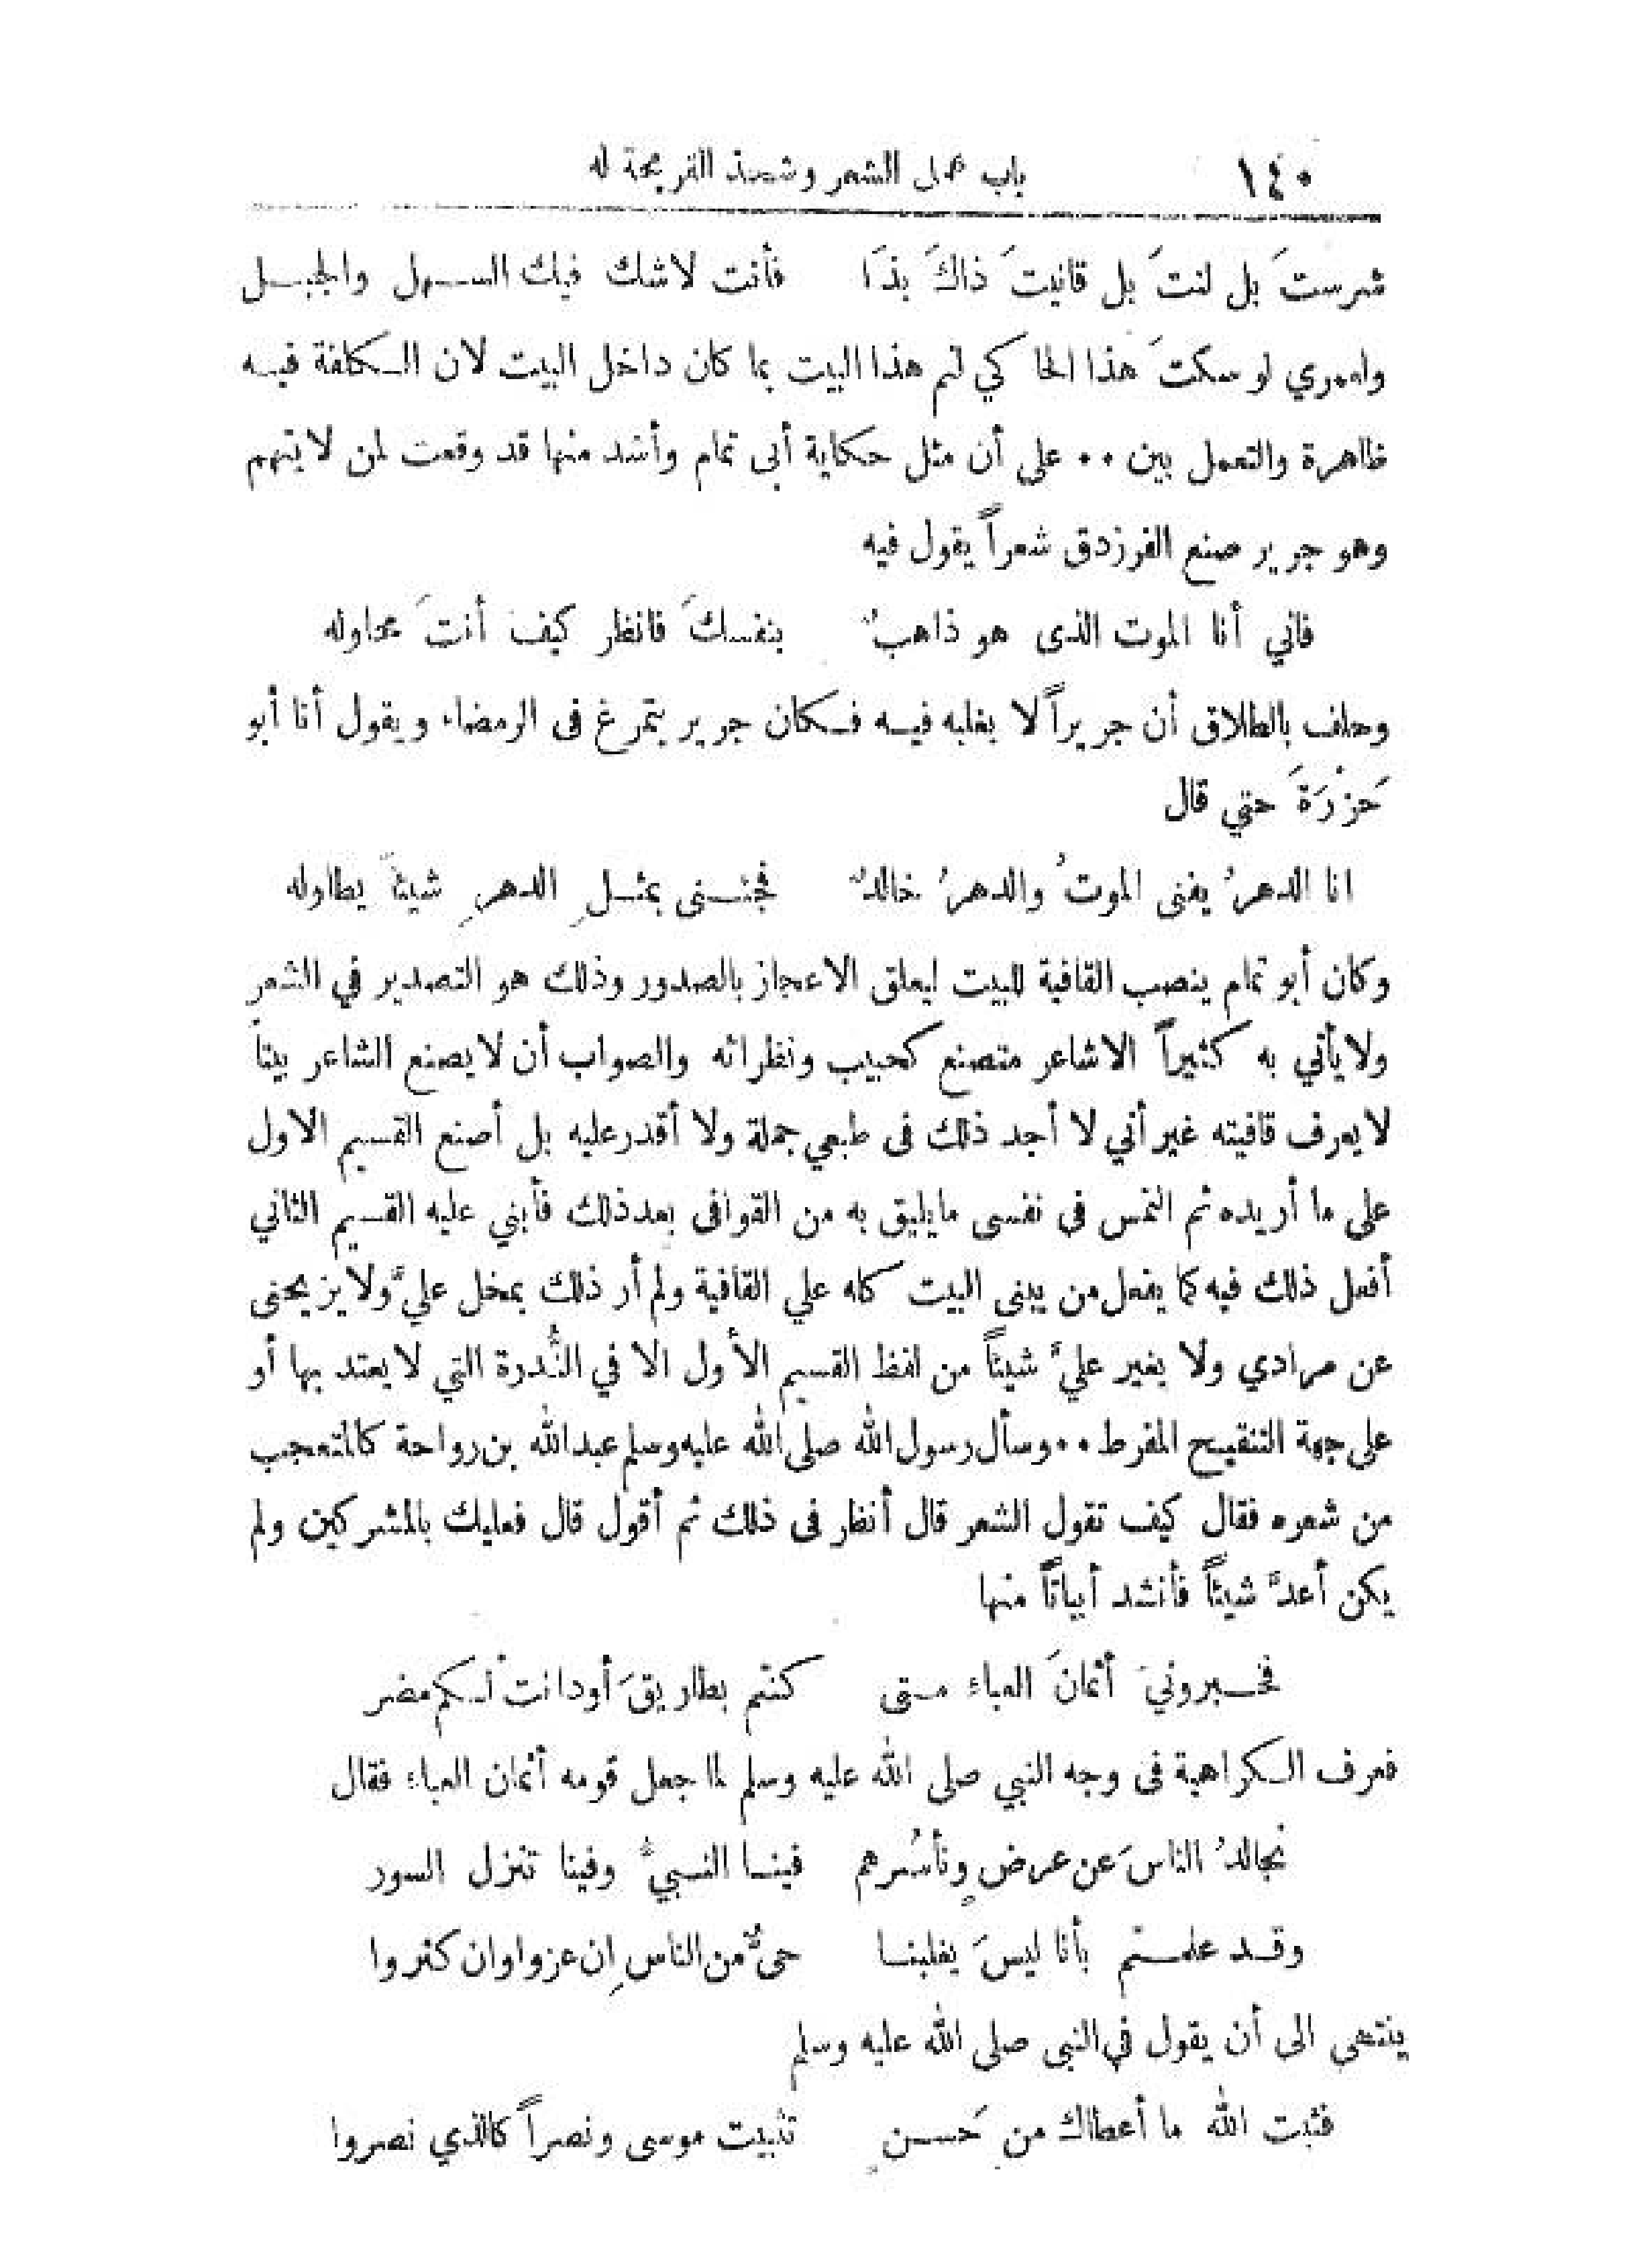 ١٤٠ باب عمل الشعر وشحذ القريحة له
شرستَ بل لنتَ بل قانيتَ ذاكَ بذَا فأنت لاشك فيك السهل والجبل
ولعمري لو سكتَ هذا الحاكي لنم هذا البيت بما كان داخل البيت لان الكلفة فيه
ظاهرة والتعمل بين ٠٠ على أن مثل حكاية أبى تمام وأشد منها قد وقعت لمن لايتهم
وهو جرير صنع الفرزدق شعراً يقول فيه
فاني أنا الموت الذى هو ذاهبٌ بنفسكَ فانظر كيف أنتَ محاوله
وحلف بالطلاق أن جريراً لا يغلبه فيه فكان جرير يتمرغ فى الرمضاء ويقول أنا أبو
حَزْرَةَ حتي قال
انا الدهرُ يفنى الموتُ والدهرُ خالدٌ فجئنى بمثلِ الدهرِ شيئاً يطاوله
وكان أبو تمام ينصب القافية للبيت ليعلق الاعجاز بالصدور وذلك هو التصدير في الشعر
ولايأتي به كثيراً الاشاعر متصنع كحبيب ونظرائه والصواب أن لايصنع الشاعر بيتاً
لايعرف قافيته غير أني لا أجد ذلك فى طبعي جملة ولا أقدر عليه بل أصنع القسيم الاول
على ما أريده ثم التمس فى نفسى مايليق به من القوافى بعد ذلك فأبني عليه القسيم الثاني
أفعل ذلك فيه كما يفعل من يبنى البيت كله علي القافية ولم أر ذلك بمخل عليَّ ولايزيحنى
عن مرادي ولا يغير عليَّ شيئاً من لفظ القسيم الأول الا في النُّدرة التي لايعتد بها أو
على جهة التنقيح المفرط ٠٠ وسأل رسول الله صلى الله عليه وسلم عبد الله بن رواحة كالمتعجب
من شعره فقال كيف تقول الشعر قال أنظر فى ذلك ثم أقول قال فعليك بالمشركين ولم
يكن أعدَّ شيئاً فأنشد أبياتاً منها
فخبرونيَ أثمانَ العباء متى كنتم بطاريقَ أودانتْ لكم مضر
فعرف الكراهية فى وجه النبي صلى الله عليه وسلم لما جعل قومه أثمان العباء فقال
نُجالدُ الناسَ عن عرضٍ ونأسُرهم فينا النبيُّ وفينا تنزل السور
وقد علمتم بأنا ليسَ يغلبنا حىٌّ من الناسِ ان عزوا وان كثروا
ينتهى الى أن يقول في النبى صلى الله عليه وسلم
فثبت الله ما أعطاك من حَسنٍ تثبيت موسى ونصراً كالذي نصروا